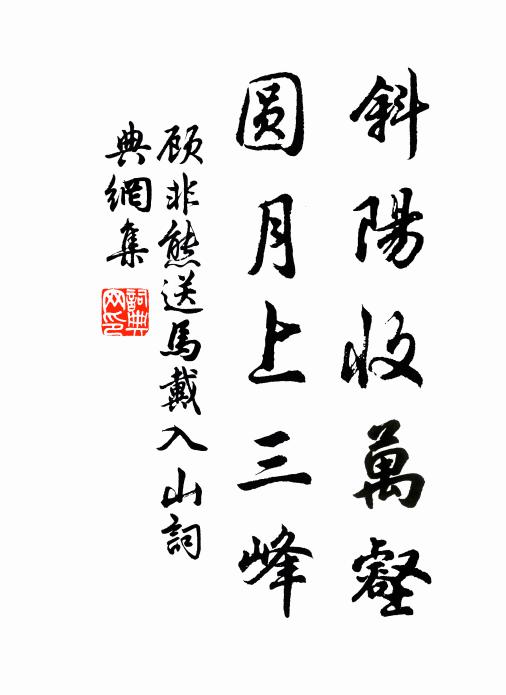 斜陽收萬壑
圓月上三峰
顧非熊送馬戴入山詞
典網集
詞典
网印